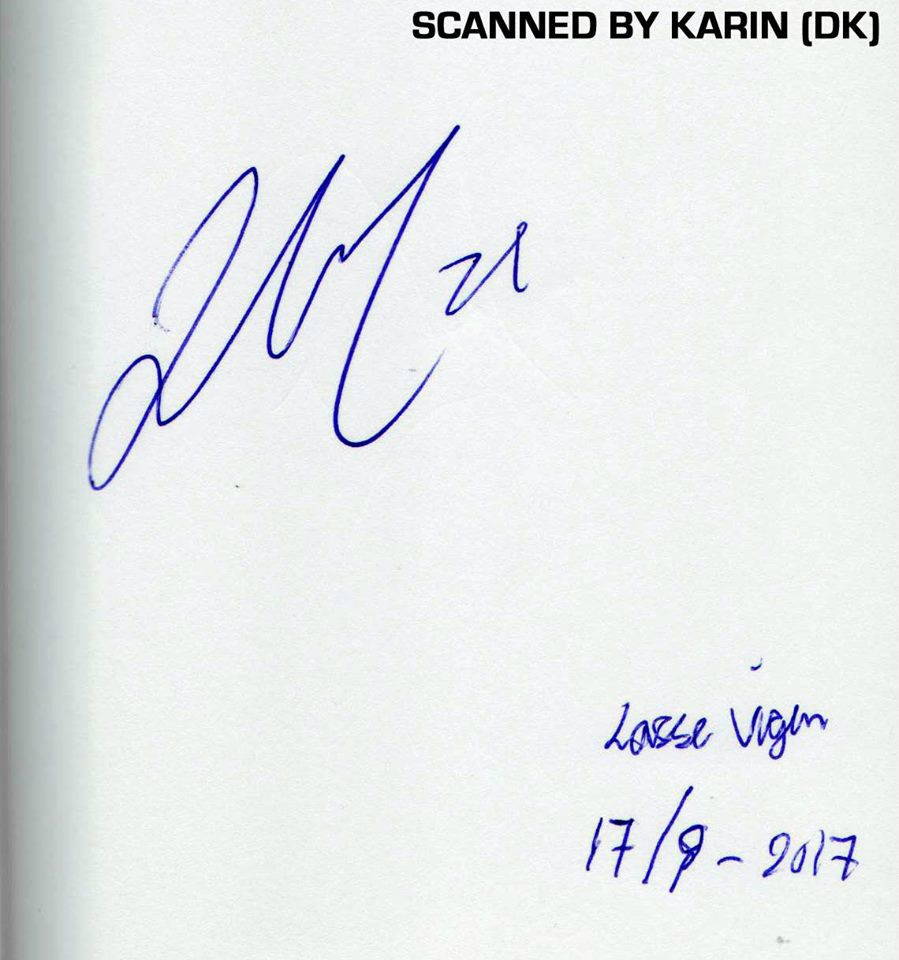 SCANNED BY KARIN (DK)
21
Lasse Vigen
17/9 - 2017